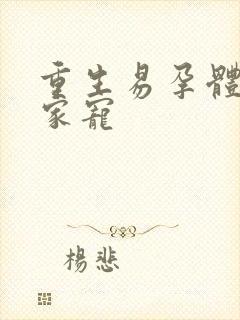 重生易孕體
家寵
楊悲